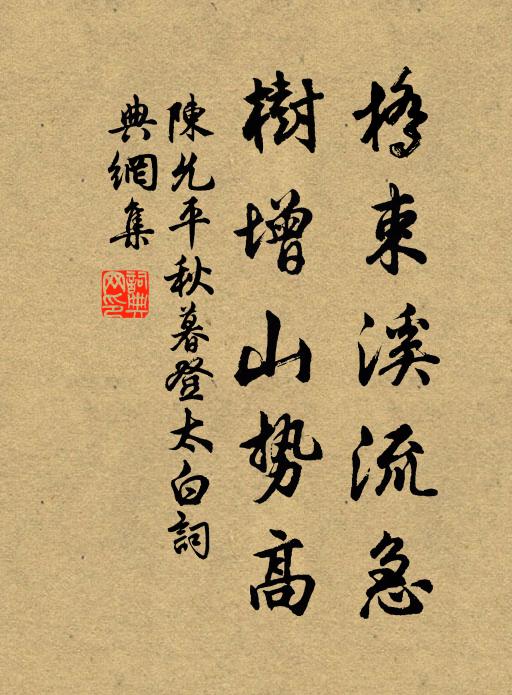 橋束溪流急
樹增山勢高
陳允平秋暮登太白詞
典網集
詞典網印